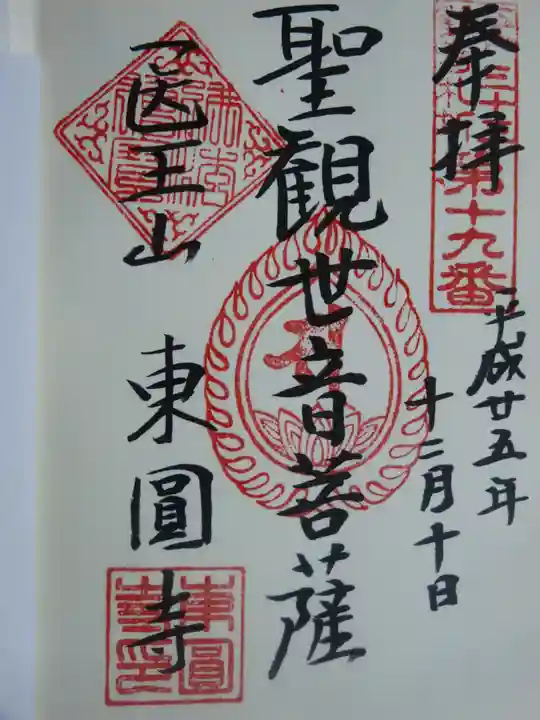 奉拝
第十九番
平成廿五年
十二月十日
聖観世音菩薩
医王山
東圓寺
東圓